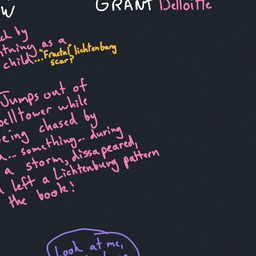 W
GRANT Delloitte
ck by
htning as a
child... "Fractal lichtenburg
scar?
Jumps out of
belltower while
being chased by
... something... during
a storm, dissapeared,
left a Lichtenburg pattern
the book!
Look at me,